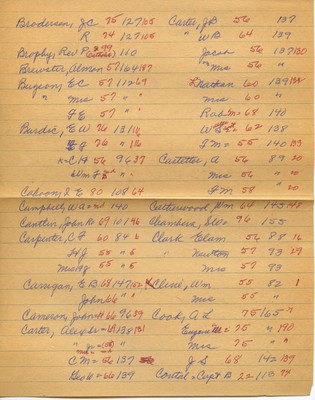 Brodersen, J C 75 127 105
R 74 127 105
Brophy, Rev P. 110
Brewster, Almon 57 164 187
Bryson, E C 57 112 69
" Mrs 57 "
F E 57 "
Bardic, E W 76 131
E J 76 " 116
C H 56 96 37
Wm F
Cahoon, J E 80 108 64
Campbell, W a 2nd 140
Cantlin, John B 69 101 96
Carpenter, C F 60 84 6
H J 55 " 6
Mrs H J 55 " 6
Carrigan, E B 68 147 152
John 66 "
Cameron, John H 66 96 39
Carter, Alex Sr 68 138 131
" Jr
C M = 56 137
Geo W = 66 139
Carter, J B 56 137
" W B 64 139
Jacob 56 137 130
" Mrs 56 "
Nathan 60 139 134
Mrs 60 "
Rob 68 140
W 62 138
F M = 55 140 133
Castetter, A 56 89 20
Mrs 56 " 20
F M 58 " 20
Catherwood, Wm 64 143 148
Chambers, 96 155
Clark Elam 56 88 16
" Newton 57 93 29
Mrs 57 93
Cline, Wm 55 82 1
Mrs 55 "
Cook, A L 75 165
Eugene M = 75 " 190
Mrs 75 "
J S 68 142 139
Contal = Capt B 22 118 74